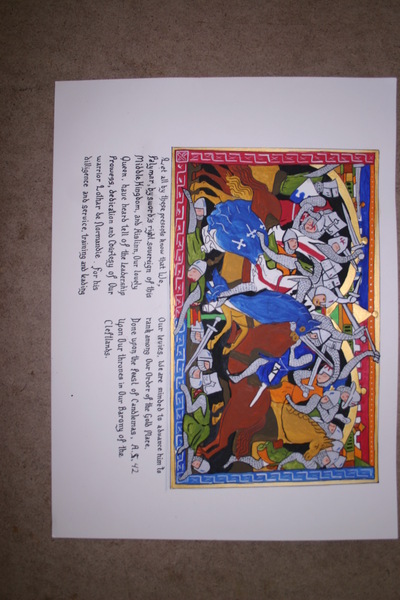 Let all by these presents know that We,
Palymar, by sword's right sovereign of this
Middle Kingdom, and Aislinn, Our lovely
Queen, have heard tell of the leadership
Prowess, dedication and Courtesy of Our
warrior Lothar be Normanhe. For his
diligence and service, training and leading
Our levies, We are minded to advance him to
rank among Our Order of the Gold Mace.
Done upon the feast of Candlemas, A.S. 42
Upon Our thrones in Our Barony of the
Cleftlands.